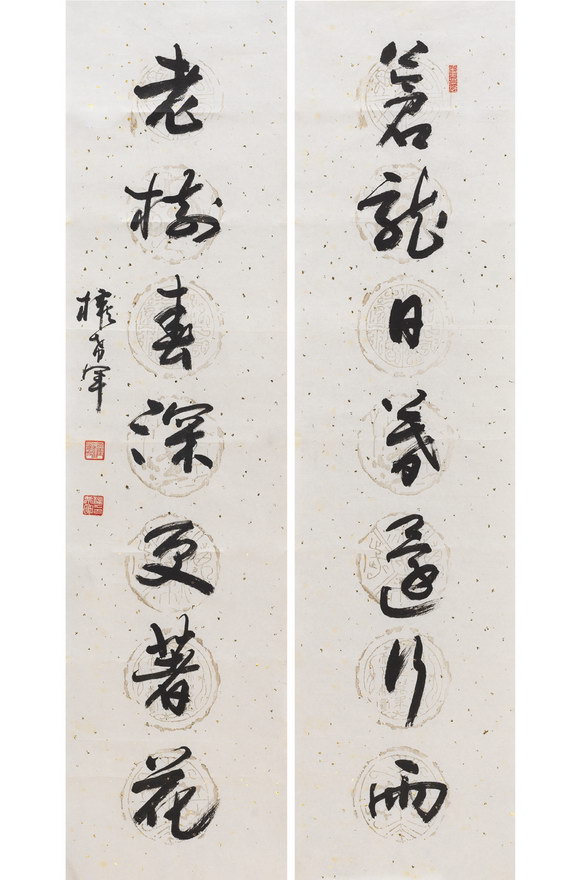 蒼龍日暮還行雨
老樹春深更著花
權希軍